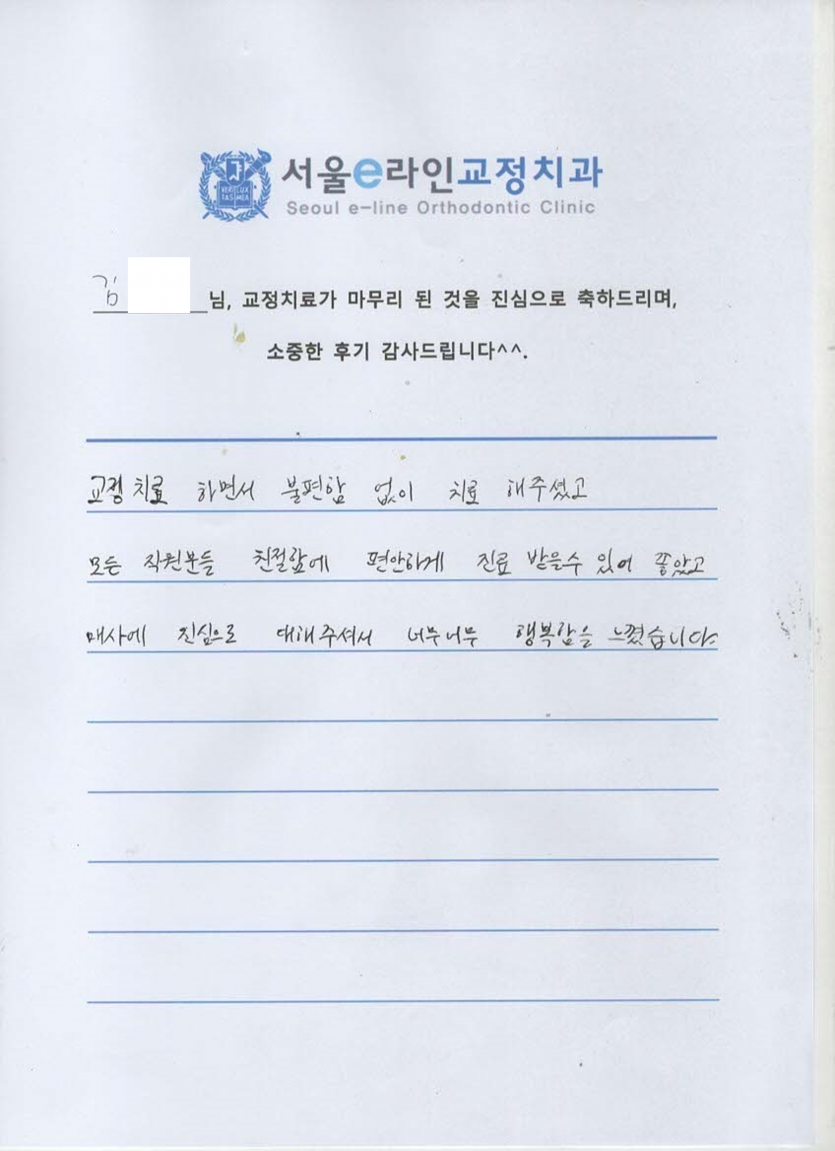 서울e라인교정치과
Seoul e-line Orthodontic Clinic
김 님, 교정치료가 마무리 된 것을 진심으로 축하드리며,
소중한 후기 감사드립니다^^.
교정 치료 하면서 불편함 없이 치료 해주셨고
모든 직원분들 친절함에 편안하게 진료 받을수 있어 좋았고
매사에 진심으로 대해주셔서 너무너무 행복함을 느꼈습니다.